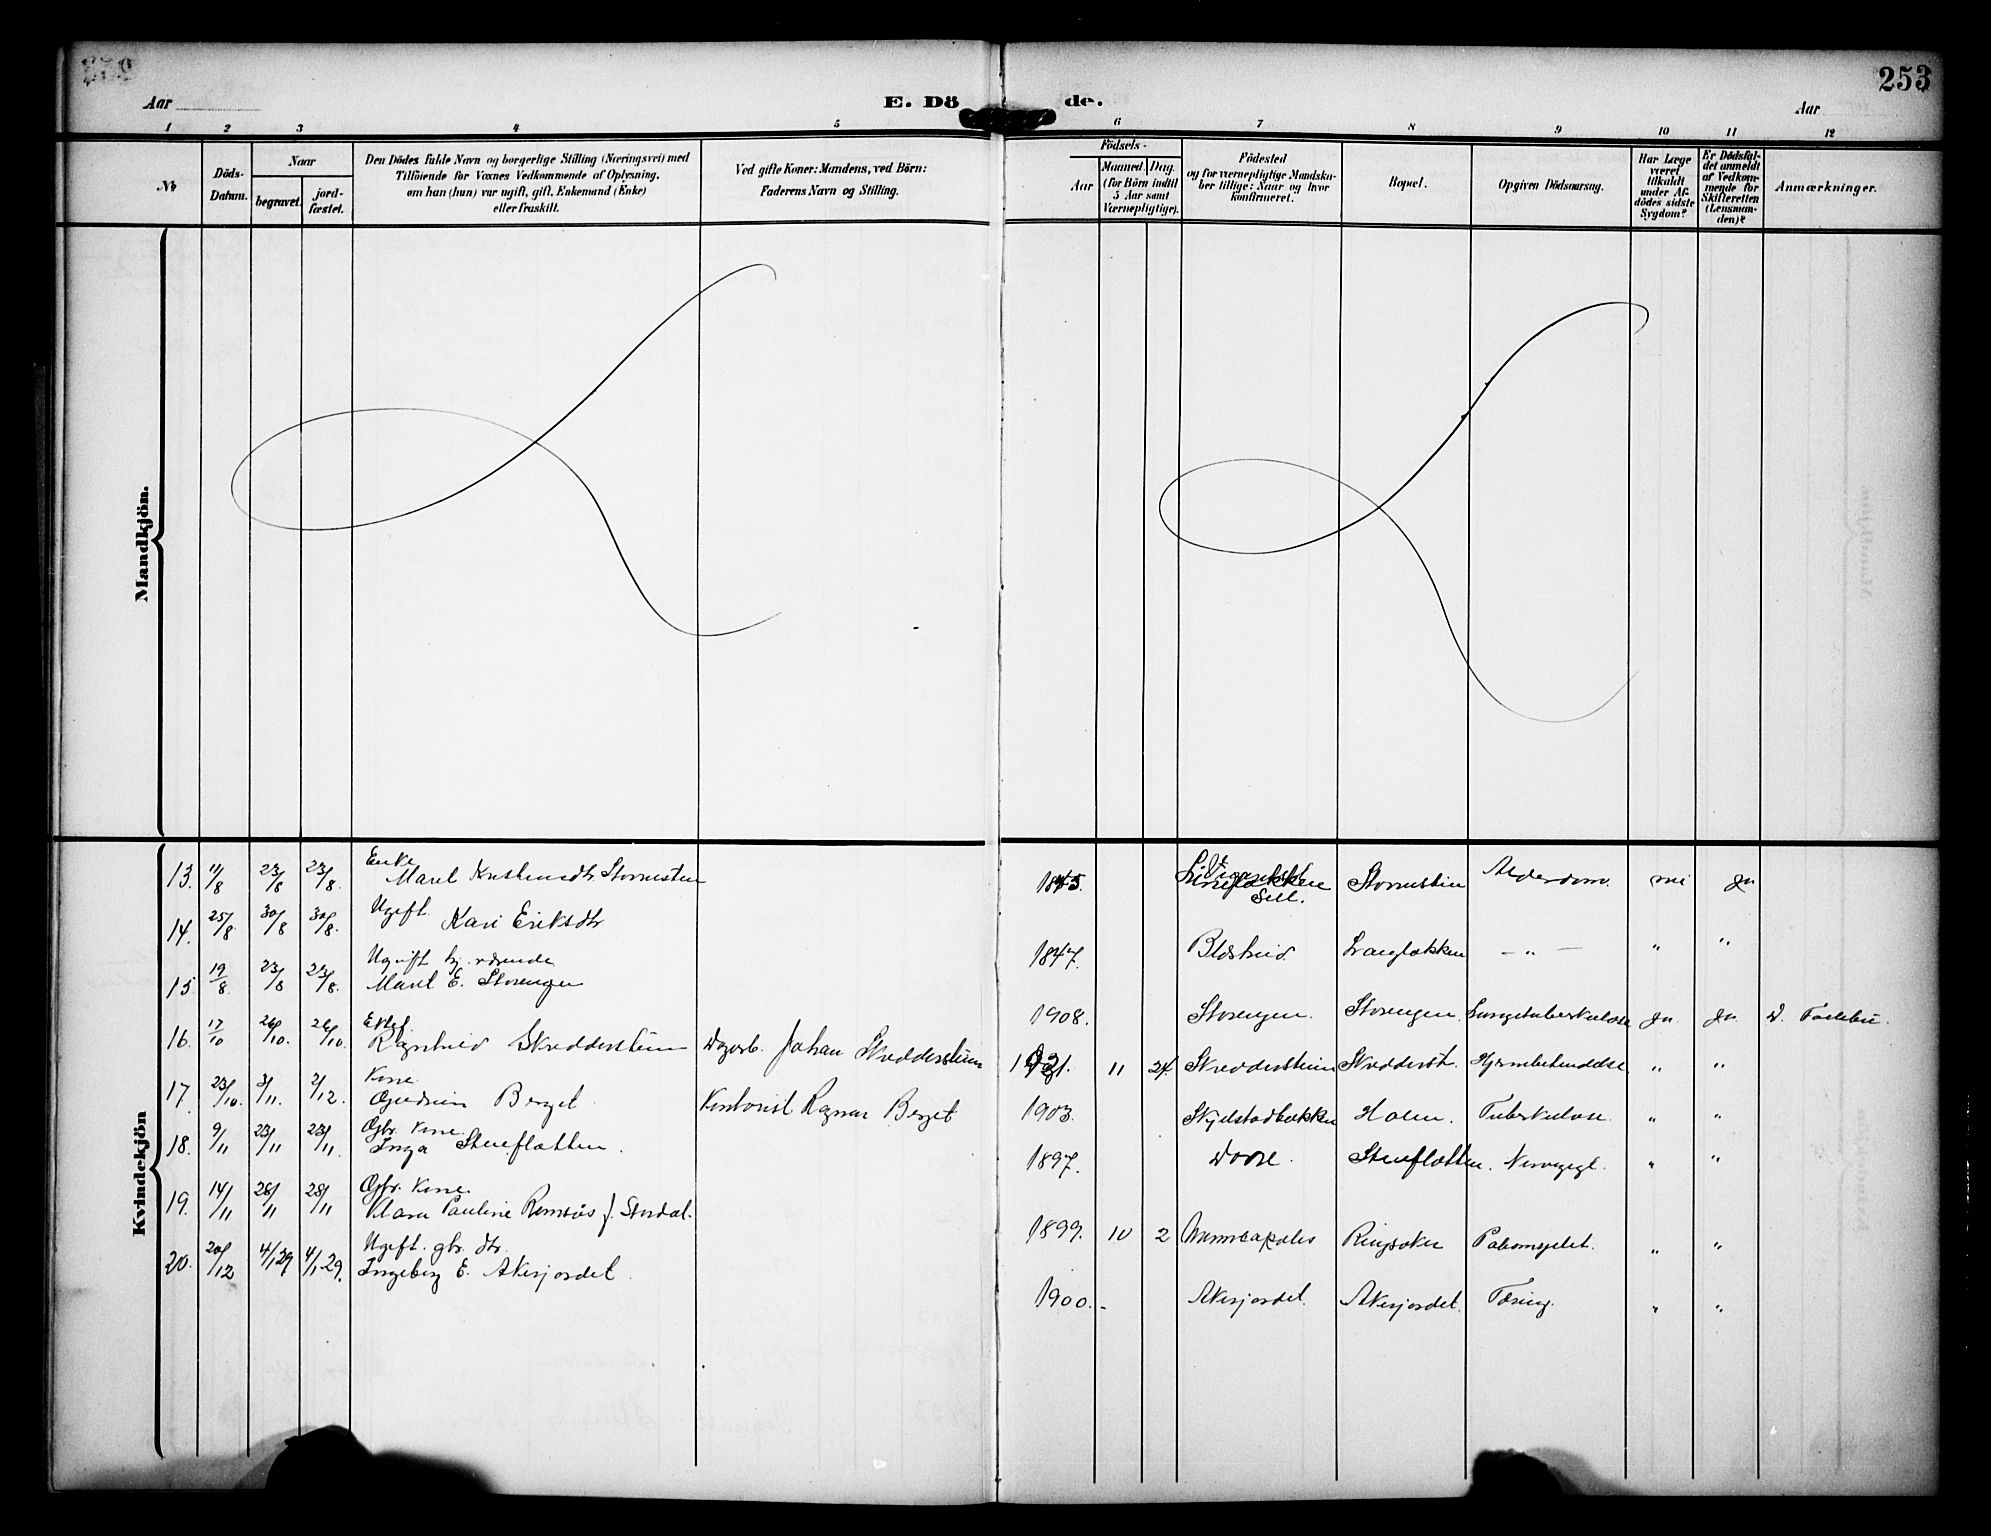 253
Aar
E. Dö de.
Aar
1 2 3 4 5 6 7 8 9 10 11 12
No
Döds-
Datum.
Naar
begravet.
jord-
fæstet.
Den Dödes fulde Navn og borgerlige Stilling (Næringsvei) med
Tilföiende for Voxnes Vedkommende af Oplysning,
om han (hun) var ugift, gift, Enkemand (Enke)
eller fraskilt.
Ved gifte Koner: Mandens, ved Börn:
Faderens Navn og Stilling.
Födsels-
Aar
Maaned. Dag.
(for Börn indtil
5 Aar samt
Værnepligtige).
Födested
og for værnepligtige Mandska-
ber tillige: Naar og hvor
konfirmeret.
Bopæl.
Opgiven Dödsaarsag.
Har Læge
været
tilkaldt
under Af-
dödes sidste
Sygdom?
Er Dödsfal-
det anmeldt
af Vedkom-
mende for
Skifteretten
(Lensman-
den)?
Anmærkninger.
Mandkjön.
Kvindekjön
13. 11/8 23/8 23/8. Enke
Marit Kristensdtr. Stornestien 1845. Sell. Stornestien Alderdom. nei ja
14. 25/8 30/8 30/8. Ugift.
Kari Eriksdtr 1847. Langlokken – „ – „ „
15. 19/8. 23/8 23/8. Ugift hj. værende
Marit E. Storengen 1908. Storengen. Storengen. Lungetuberkulose ja ja D.
16. 17/10 26/10. 26/10.
Ragnhild Skreddersteien Dagarb. Johan Skreddersteien 11 24. Skreddersteien Skredderst. „ „
17. 23/10. 3/11. 2/12. Kone.
Gudrun Berget. Kontorist Ragnar Berget 1903. Skjelstadbakken Holen. Tuberkulose. „ „
18. 9/11 23/11 23/11. Gbr. Kone.
Inga Stenflatten. 1897. Dovre. Stenflatten. „ „
19. 14/11 28/11 28/11 Gbr. Kone.
Klara Pauline Remsås f. Stordal. 1899. 10 2 Minneapolis Ringsaker „ „
20. 20/12 4/1 29 4/1 29. Ugift. gbr. dtr.
Ingeborg E. Akerjordet. 1900. - Akerjordet. Akerjordet. Tæring. „ „